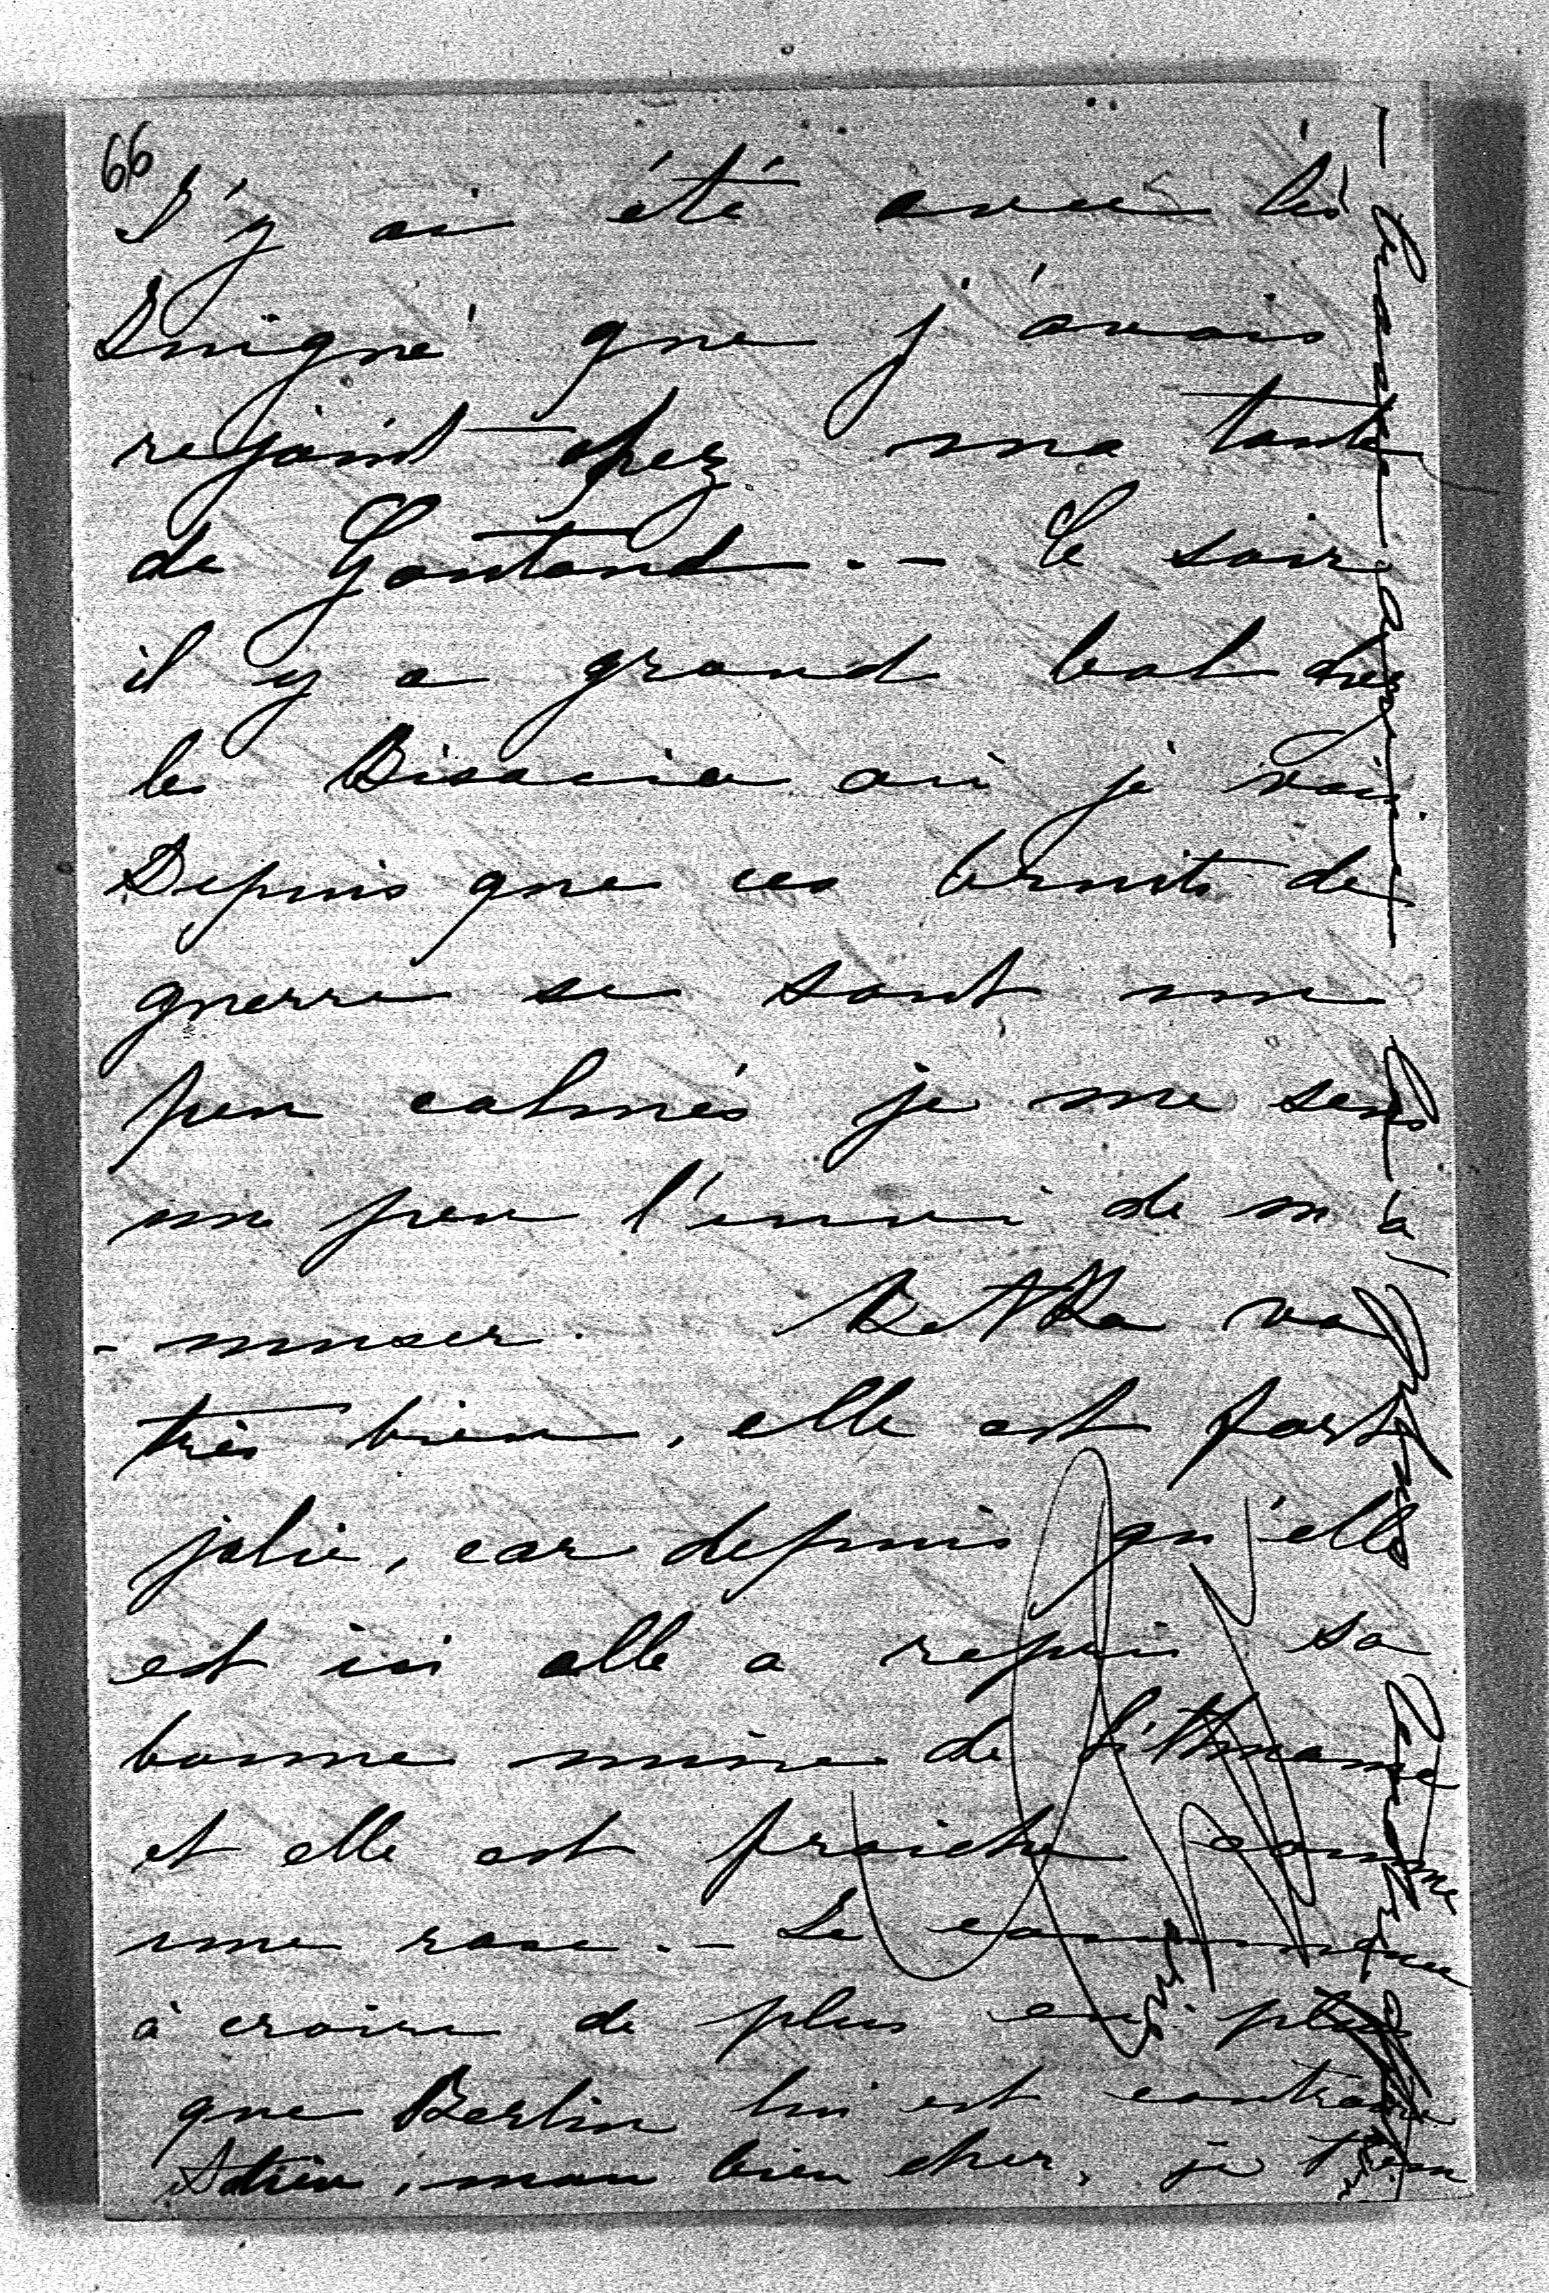 66
J'y ai été avec les
Suigné que j'avais
rejoint chez ma tante
de Gontaud. - Ce soir
il y a grand bal chez
les Bisaccia où je vais
Depuis que ces bruits de
guerre se sont un
peu calmés je me sens
un peu l'envie de m'a
- muser. Betka va
très bien, elle est fort
jolie, car depuis qu'elle
est ici elle a repris sa
bonne mine de Lithuanie
et elle est fraiche comme
une rose. - Je commence
à croire de plus en plus
que Berlin lui est contraire
Adieu, mon bien cher, je t'em